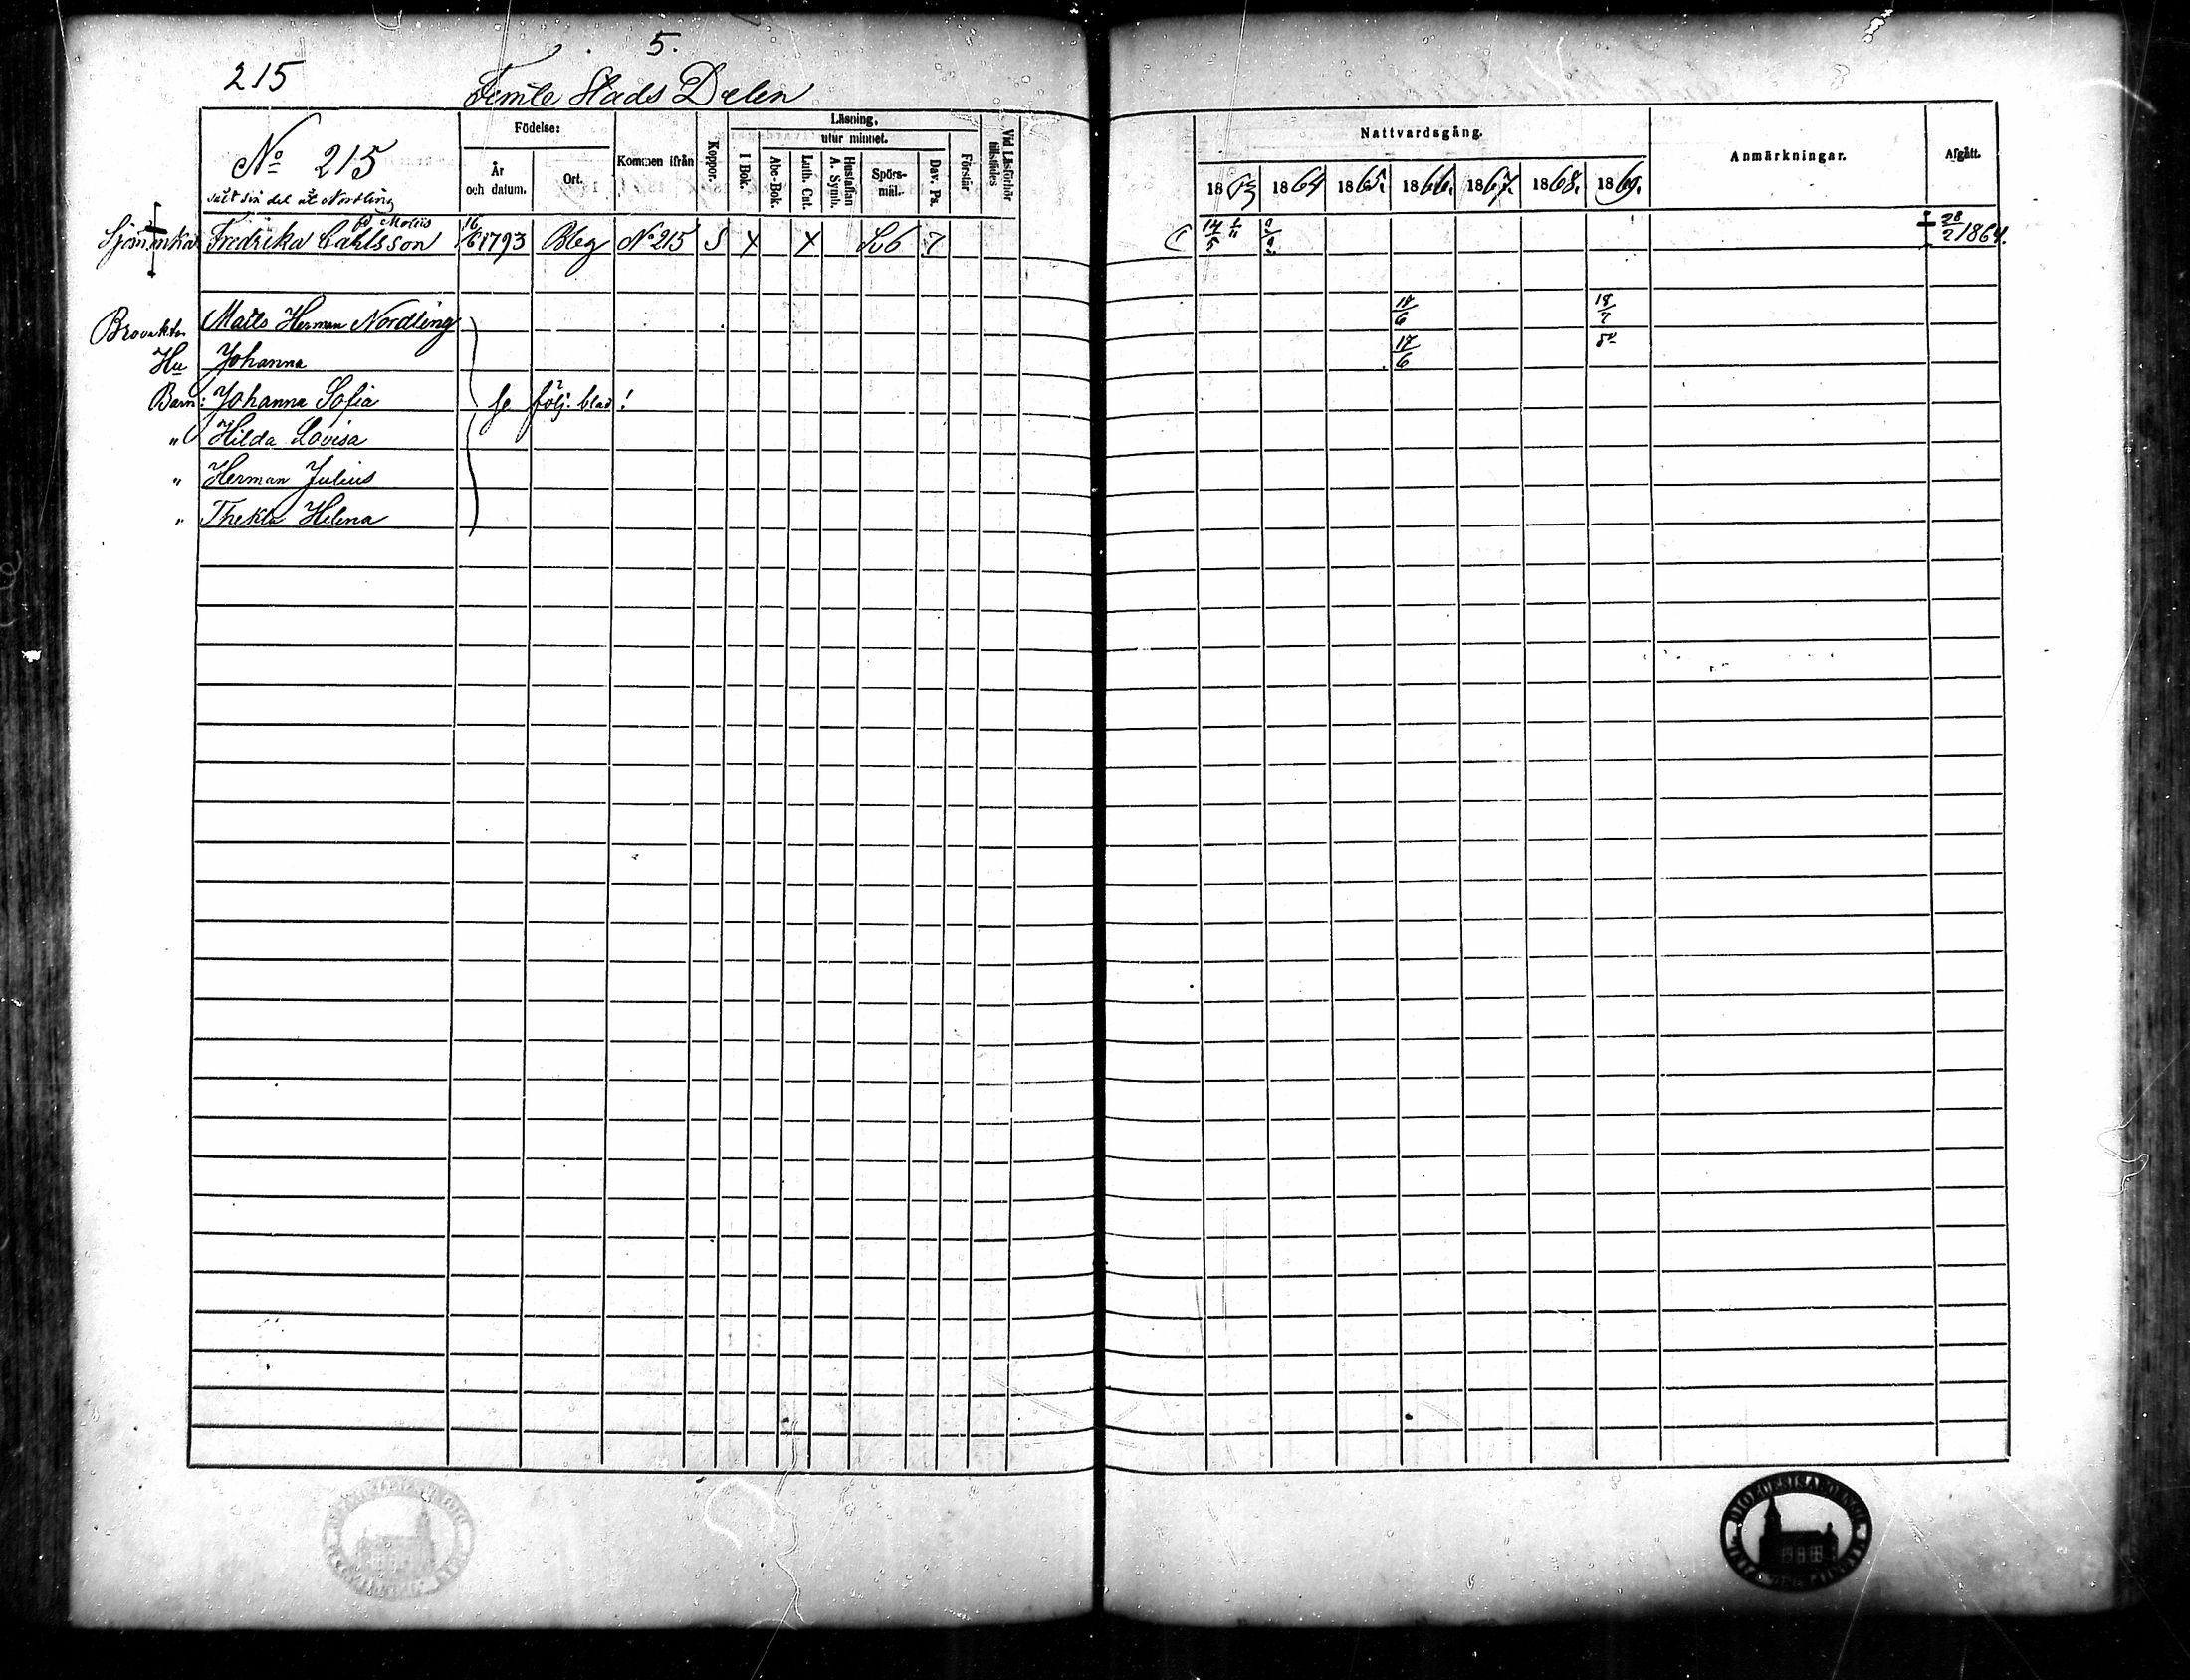 5.
215
Femte Stads Delen
No 215
sålt sin del åt Nordling
Födelse:
År och datum.
Ort.
Kommen ifrån
Koppor.
Läsning.
utur minnet.
I Bok.
Abc-Bok.
Luth. Cat.
Hustaflan A. Symb.
Spörs-mål.
Dav. Ps.
Förstår
Vid Läsförhör tillstädes
Nattvardsgång.
1863 1864 1865. 1866. 1867. 1868. 1869.
Anmärkningar.
Afgått.
Fredrika Cahlsson 16/6 1793 Bbg No 215 S X X 7 14/5 28/2 1864.
Matts Herman Nordling 17/6 18/7
Hu Johanna 17/6 do
Barn: Johanna Sofia se följ. blad!
" Hilda Lovisa
" Herman Julius
" Thekla Helena